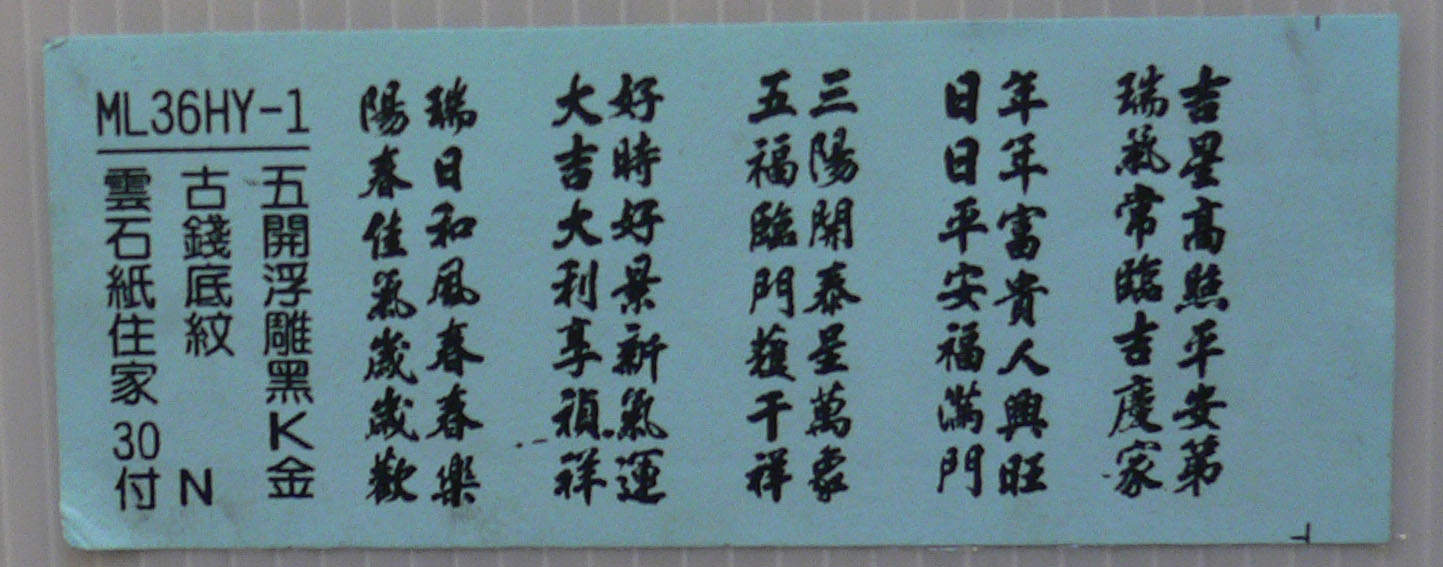 吉星高照平安第
瑞氣常臨吉慶家
年年富貴人興旺
日日平安福滿門
三陽開泰呈萬象
五福臨門獲千祥
好時好景新氣運
大吉大利享禎祥
瑞日和風春春樂
陽春佳氣歲歲歡
ML36HY-1
五開浮雕黑K金
古錢底紋 N
雲石紙住家30付